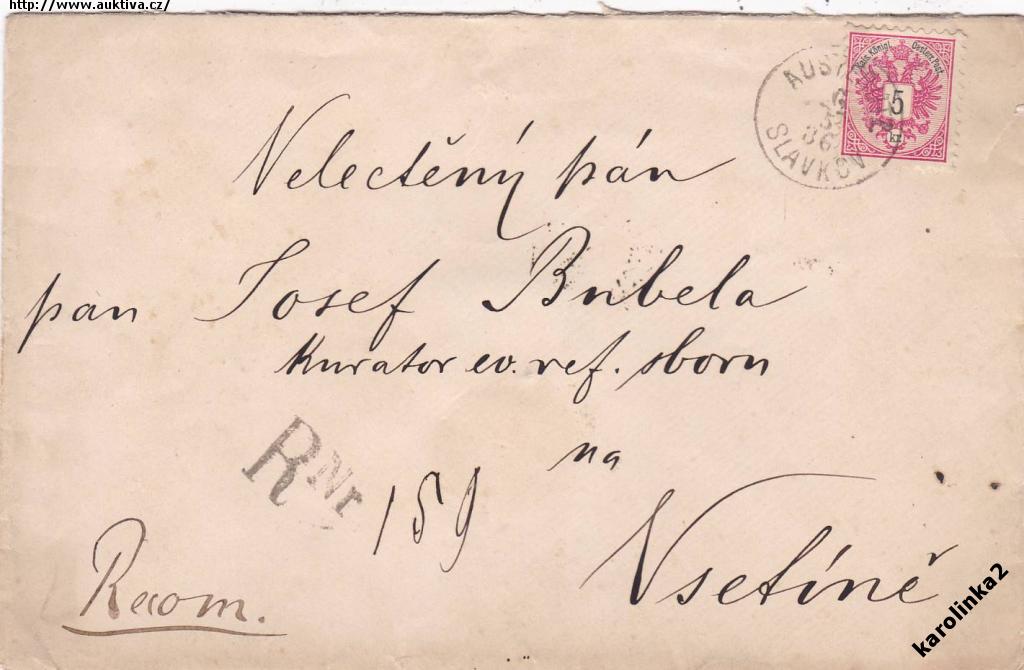 http://www.auktiva.cz/
Kais. Königl. Oesterr. Post
5
kr
AUST
86
SLAVKOV
Velectěný pán
pán Josef Bubela
Kurator ev. ref. sboru
na
Vsetíně
R Nr 159
Recom.
karolinka2